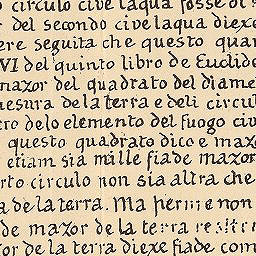 circulo cive laqua fosse di
del secondo cive laqua diexe
ere seguita che questo quar
VI del quinto libro de Euclide
mazor del quadrato del diame
mesura de la terra e deli circul
ero delo elemento del fuogo civ
questo quadrato dico e mazo
etiam sia mille fiade mazor
rto circulo non sia altra che
a de la terra. Ma perme non
de mazor de la terra
or de la terra diexe fiade com